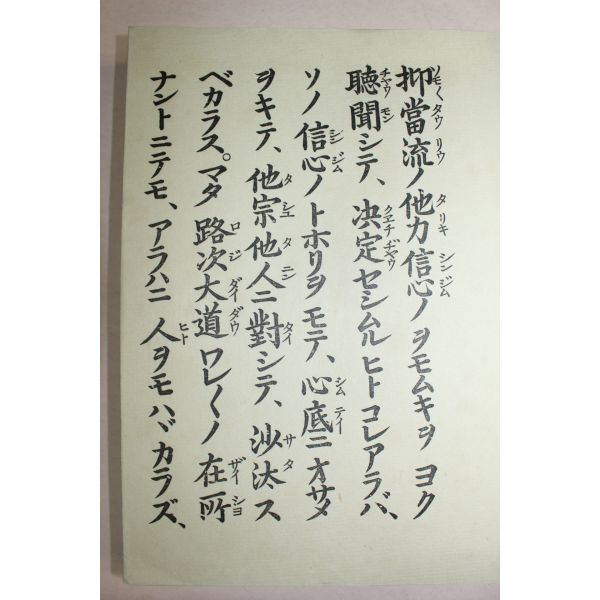 抑當流ノ他力信心ノヲモムキヲヨク
聽聞シテ、決定セシムルヒトコレアラバ、
ソノ信心ノトホリヲモテ、心底ニオサメ
ヲキテ、他宗他人ニ對シテ、沙汰ス
ベカラス。マタ路次大道ワレ〳〵ノ在所
ナントニテモ、アラハニ人ヲモハヾカラズ、